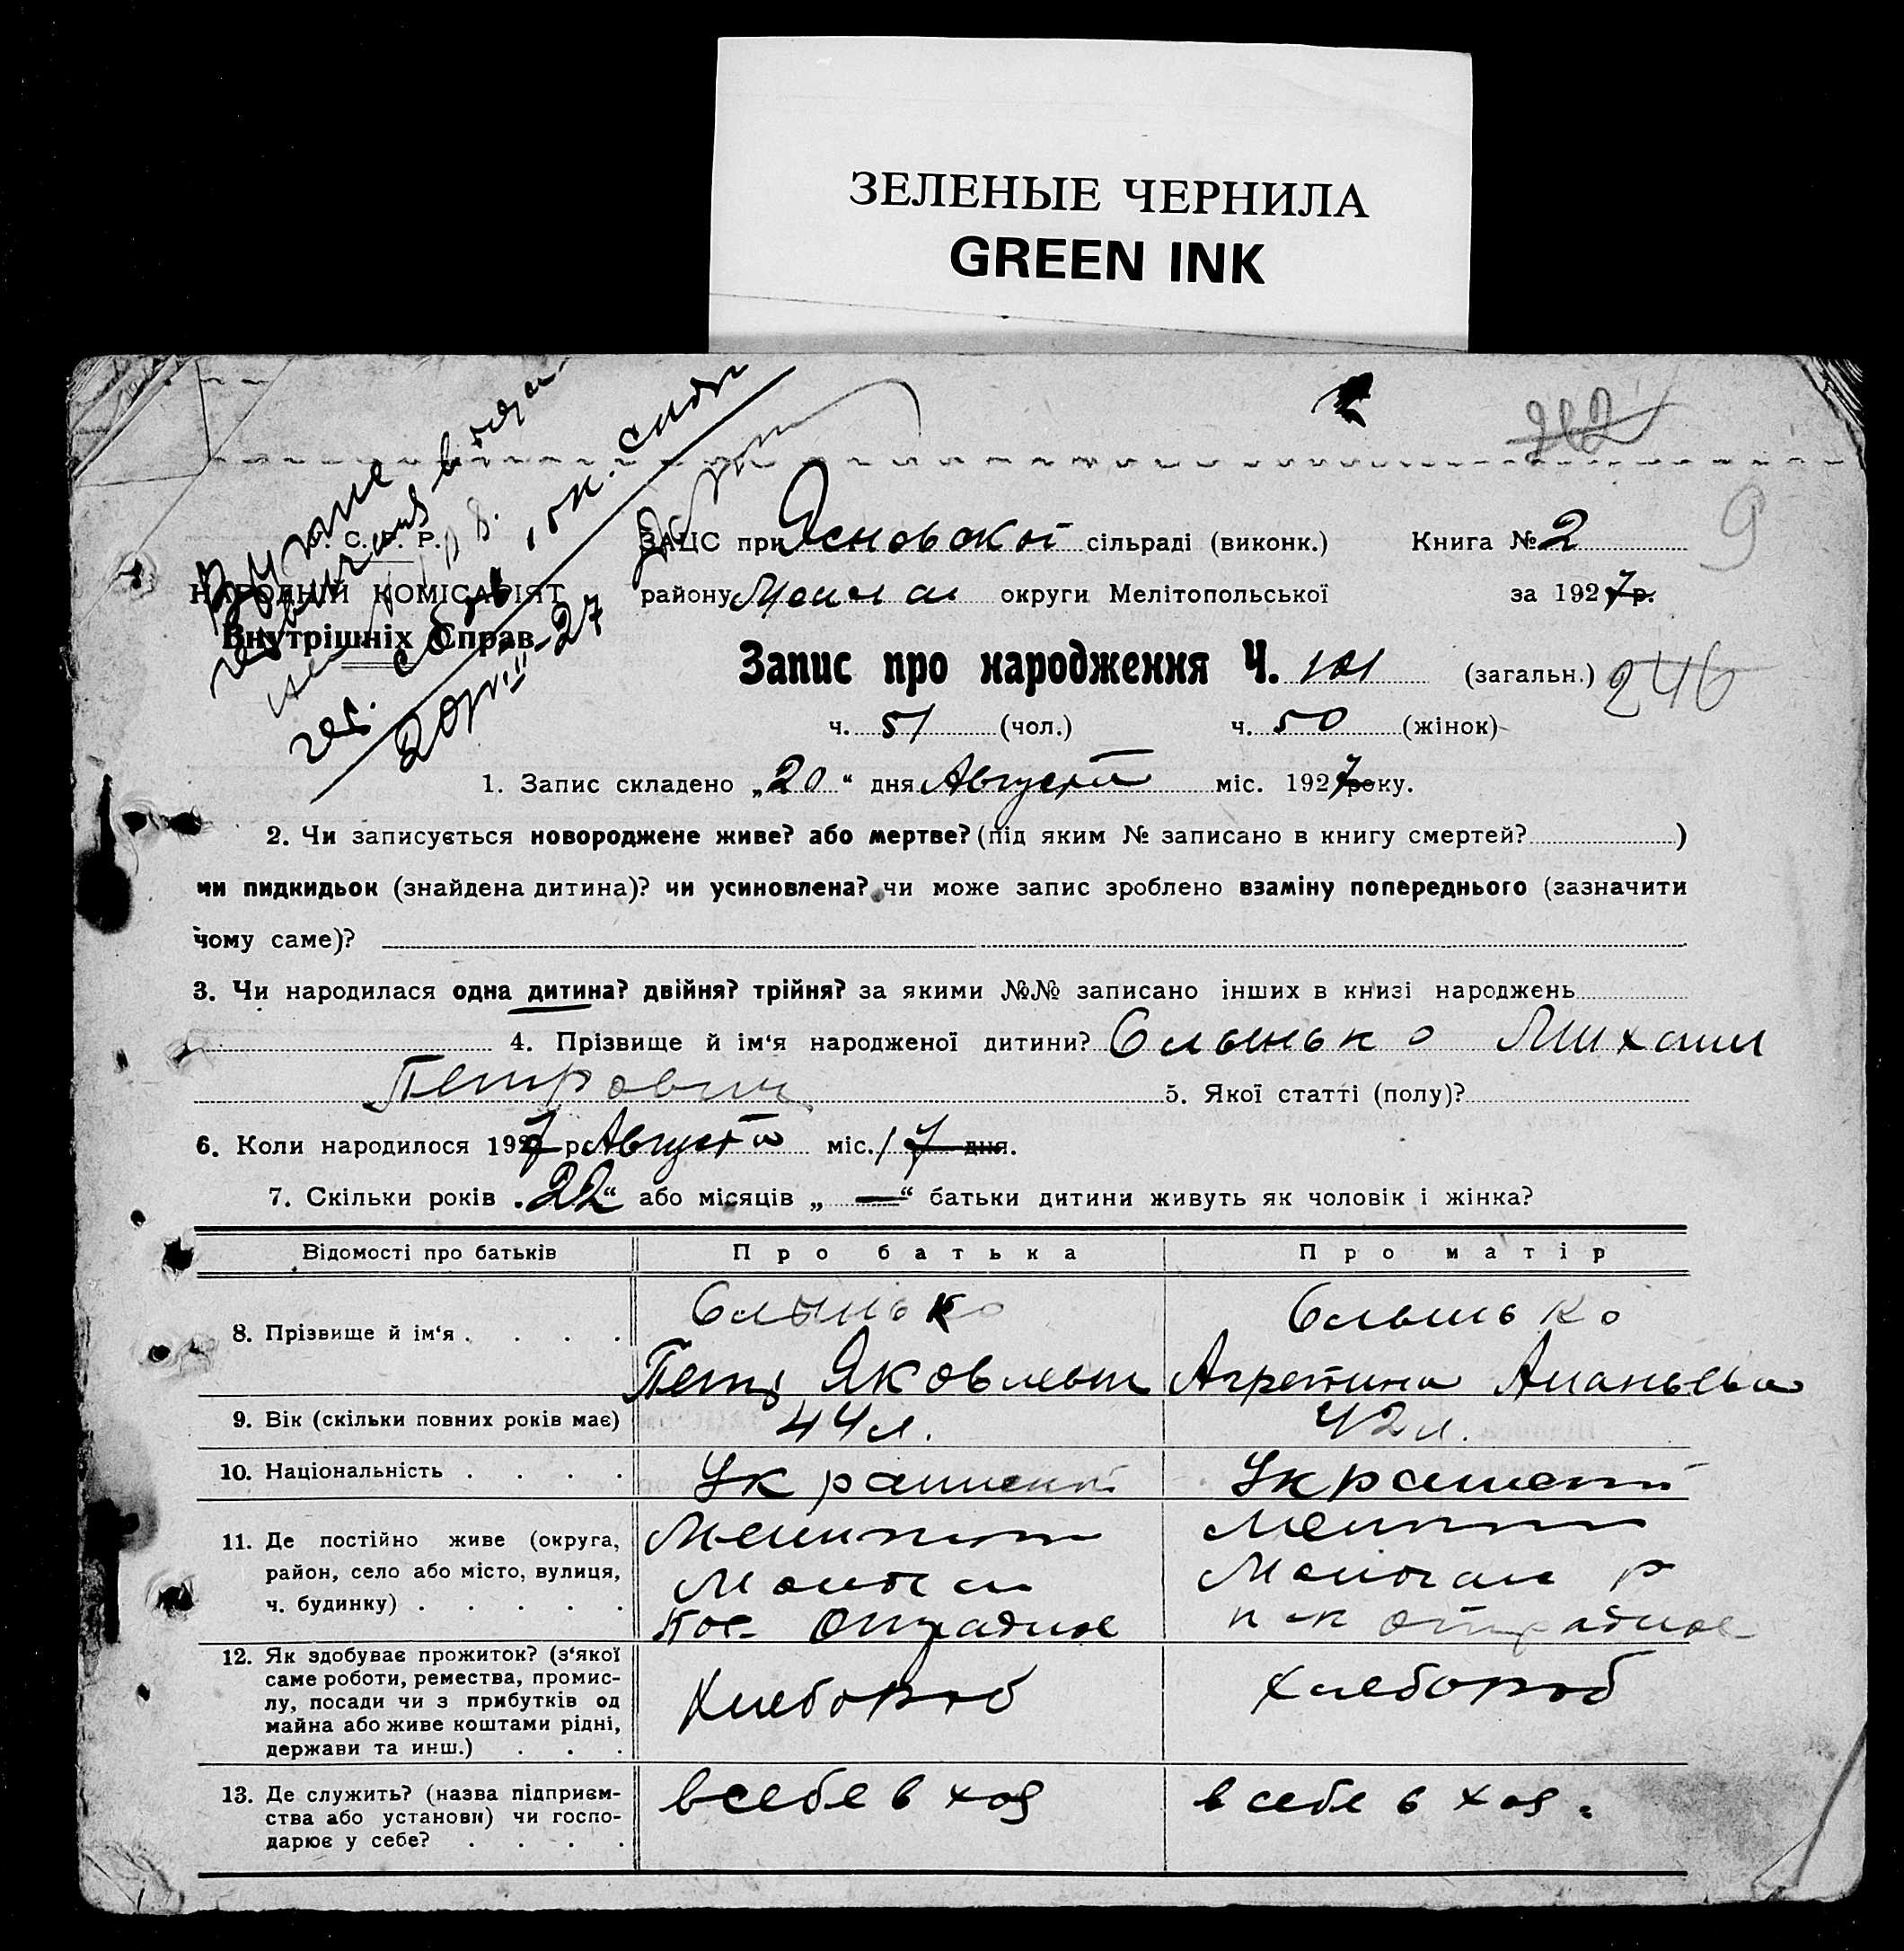 ЗЕЛЕНЫЕ ЧЕРНИЛА
GREEN INK
202
9
У. С. Р. Р.
НАРОДНІЙ КОМІСАРІЯТ
Внутрішніх Справ
27
ЗАЦС при Ясновской сільраді (виконк.) Книга № 2
району округи Мелітопольської за 1927 р.
Запис про народження Ч. 101 (загальн.) 246
ч. 51 (чол.) ч. 50 (жінок)
1. Запис складено „20“ дня Августа міс. 1927 року.
2. Чи записується новороджене живе? або мертве? (під яким № записано в книгу смертей? )
чи пидкидьок (знайдена дитина)? чи усиновлена? чи може запис зроблено взаміну попереднього (зазначити
чому саме)?
3. Чи народилася одна дитина? двійня? трійня? за якими №№ записано інших в книзі народжень
4. Прізвище й ім‘я народженої дитини? Слынько Михаил
Петрович 5. Якої статті (полу)?
6. Коли народилося 1927 р. Августа міс. 17 дня.
7. Скільки років „22“ або місяців „ — “ батьки дитини живуть як чоловік і жінка?
Відомості про батьків Про батька Про матір
8. Прізвище й ім‘я . . . . Слынько Слынько
Петр Яковлевич Агрепина Ананьева
9. Вік (скільки повних років має) 44 л. 42 л.
10. Національність . . . . Украинский Украинский
11. Де постійно живе (округа,
район, село або місто, вулиця,
ч. будинку) . . . . . пос Отрадное Отрадное
12. Як здобуває прожиток? (з‘якої
саме роботи, ремества, промис-
лу, посади чи з прибутків од
майна або живе коштами рідні,
держави та инш.) . . . Хлебороб Хлебороб
13. Де служить? (назва підприєм-
ства або установи) чи госпо-
дарює у себе? . . . . в себе в хоз в себе в хоз.